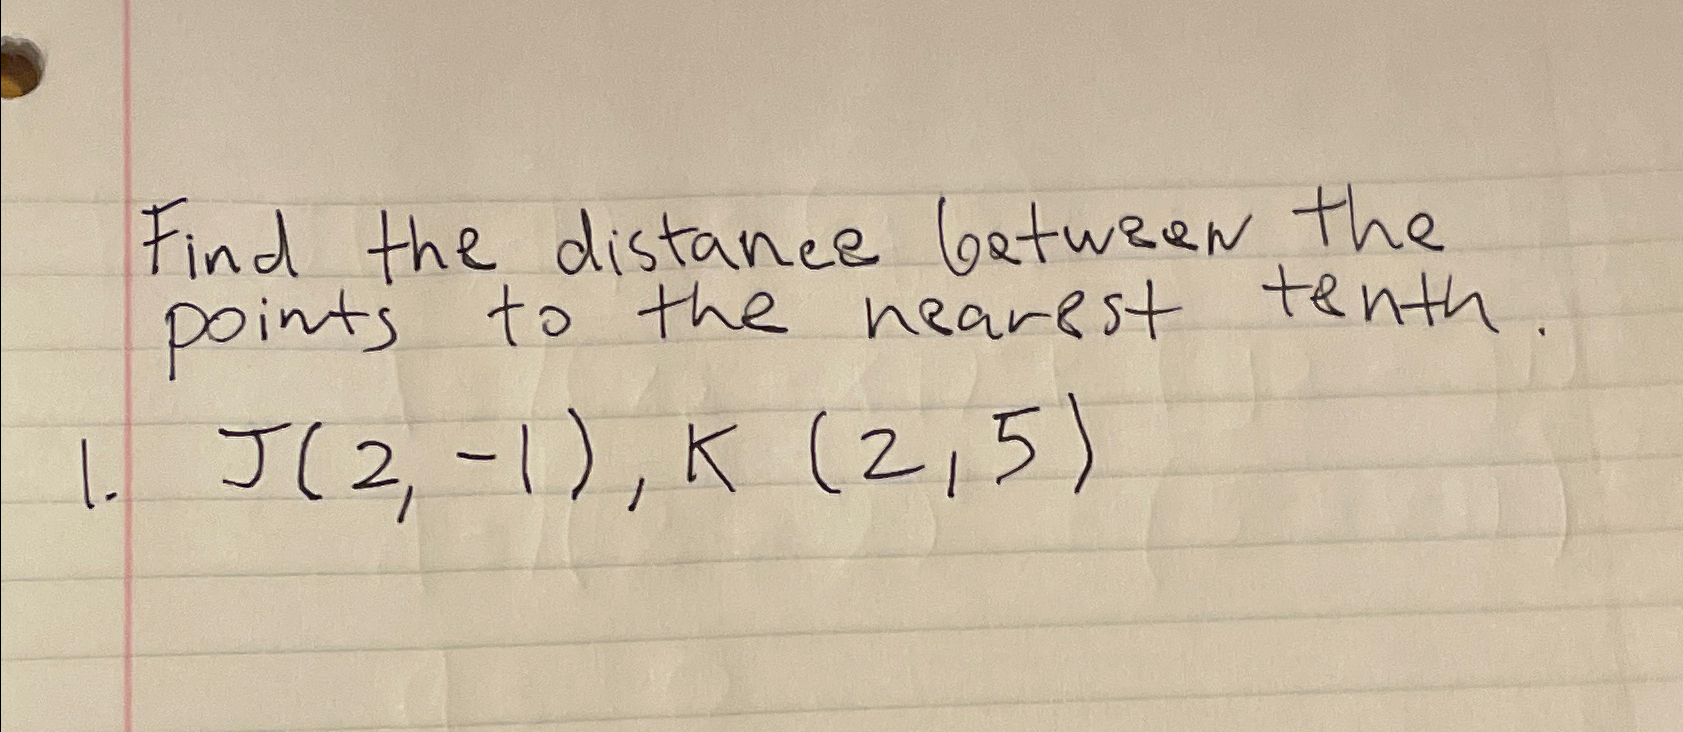 Find the distance between the
points to the nearest tenth.
1. J(2,-1), K (2,5)